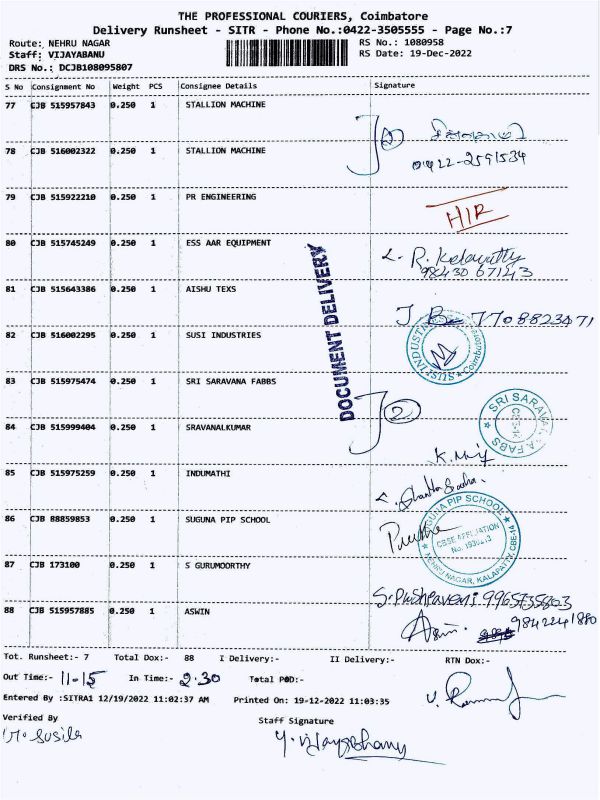 THE PROFESSIONAL COURIERS, Coimbatore
Delivery Runsheet - SITR - Phone No.:0422-3505555 - Page No.:7
Route: NEHRU NAGAR RS No.: 1080958
Staff: VIJAYABANU RS Date: 19-Dec-2022
DRS No.: DCJB108095807
S No Consignment No Weight PCS Consignee Details Signature
77 CJB 515957843 0.250 1 STALLION MACHINE
2
78 CJB 516002322 0.250 1 STALLION MACHINE
0422-2591534
79 CJB 515922210 0.250 1 PR ENGINEERING
HIR
80 CJB 515745249 0.250 1 ESS AAR EQUIPMENT
98430 67143
DOCUMENT DELIVERY
81 CJB 515643386 0.250 1 AISHU TEXS
7708823471
82 CJB 516002295 0.250 1 SUSI INDUSTRIES
SUSI INDUSTRIES Coimbatore
83 CJB 515975474 0.250 1 SRI SARAVANA FABBS
2
84 CJB 515999404 0.250 1 SRAVANALKUMAR
85 CJB 515975259 0.250 1 INDUMATHI
86 CJB 88859853 0.250 1 SUGUNA PIP SCHOOL
SUGUNA PIP SCHOOL
CBSE AFFILIATION
NEHRU NAGAR, KALAPATTI, CBE-14
87 CJB 173100 0.250 1 S GURUMOORTHY
88 CJB 515957885 0.250 1 ASWIN
Tot. Runsheet:- 7 Total Dox:- 88 I Delivery:- II Delivery:- RTN Dox:-
Out Time:- 11-15 In Time:- 2.30 Total POD:-
Entered By :SITRA1 12/19/2022 11:02:37 AM Printed On: 19-12-2022 11:03:35
Verified By Staff Signature